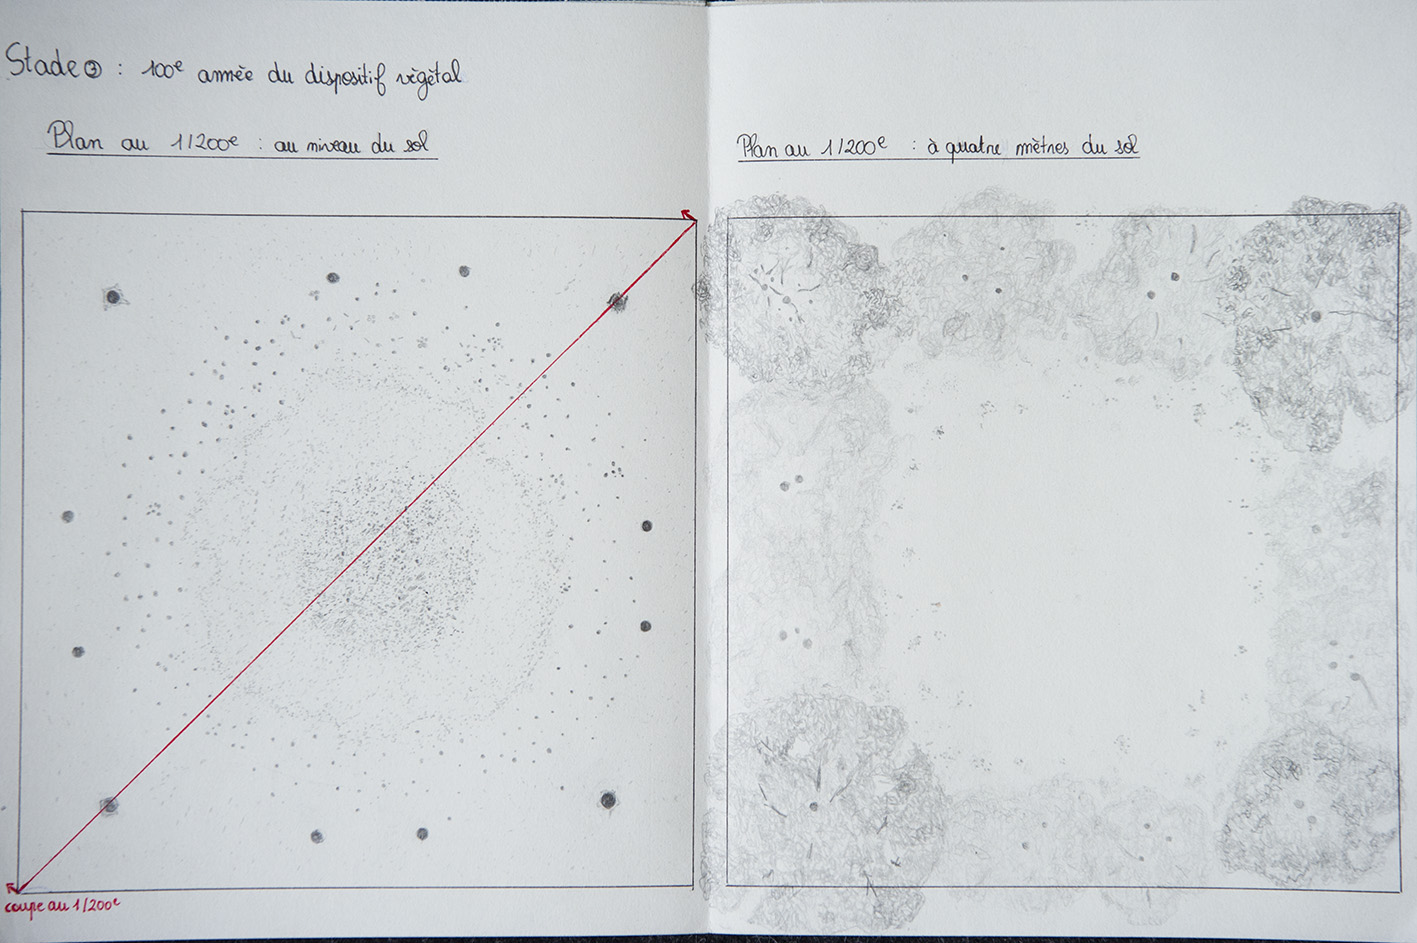 Stade ③ : 100e année du dispositif végétal
Plan au 1/200e : au niveau du sol
Plan au 1/200e : à quatre mètres du sol
coupe au 1/200e